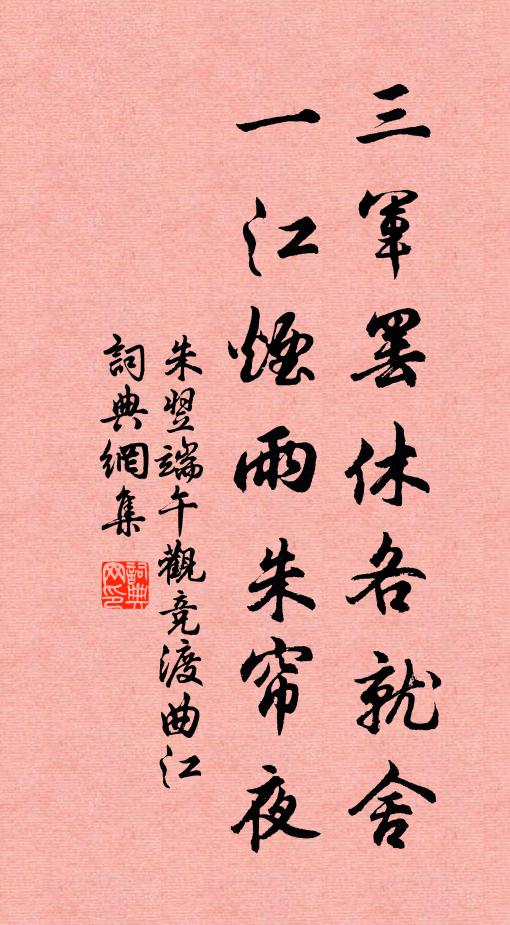 三軍罷休各就舍
一江煙雨朱帘夜
朱翌端午觀競渡曲江
詞典網集
詞典網印